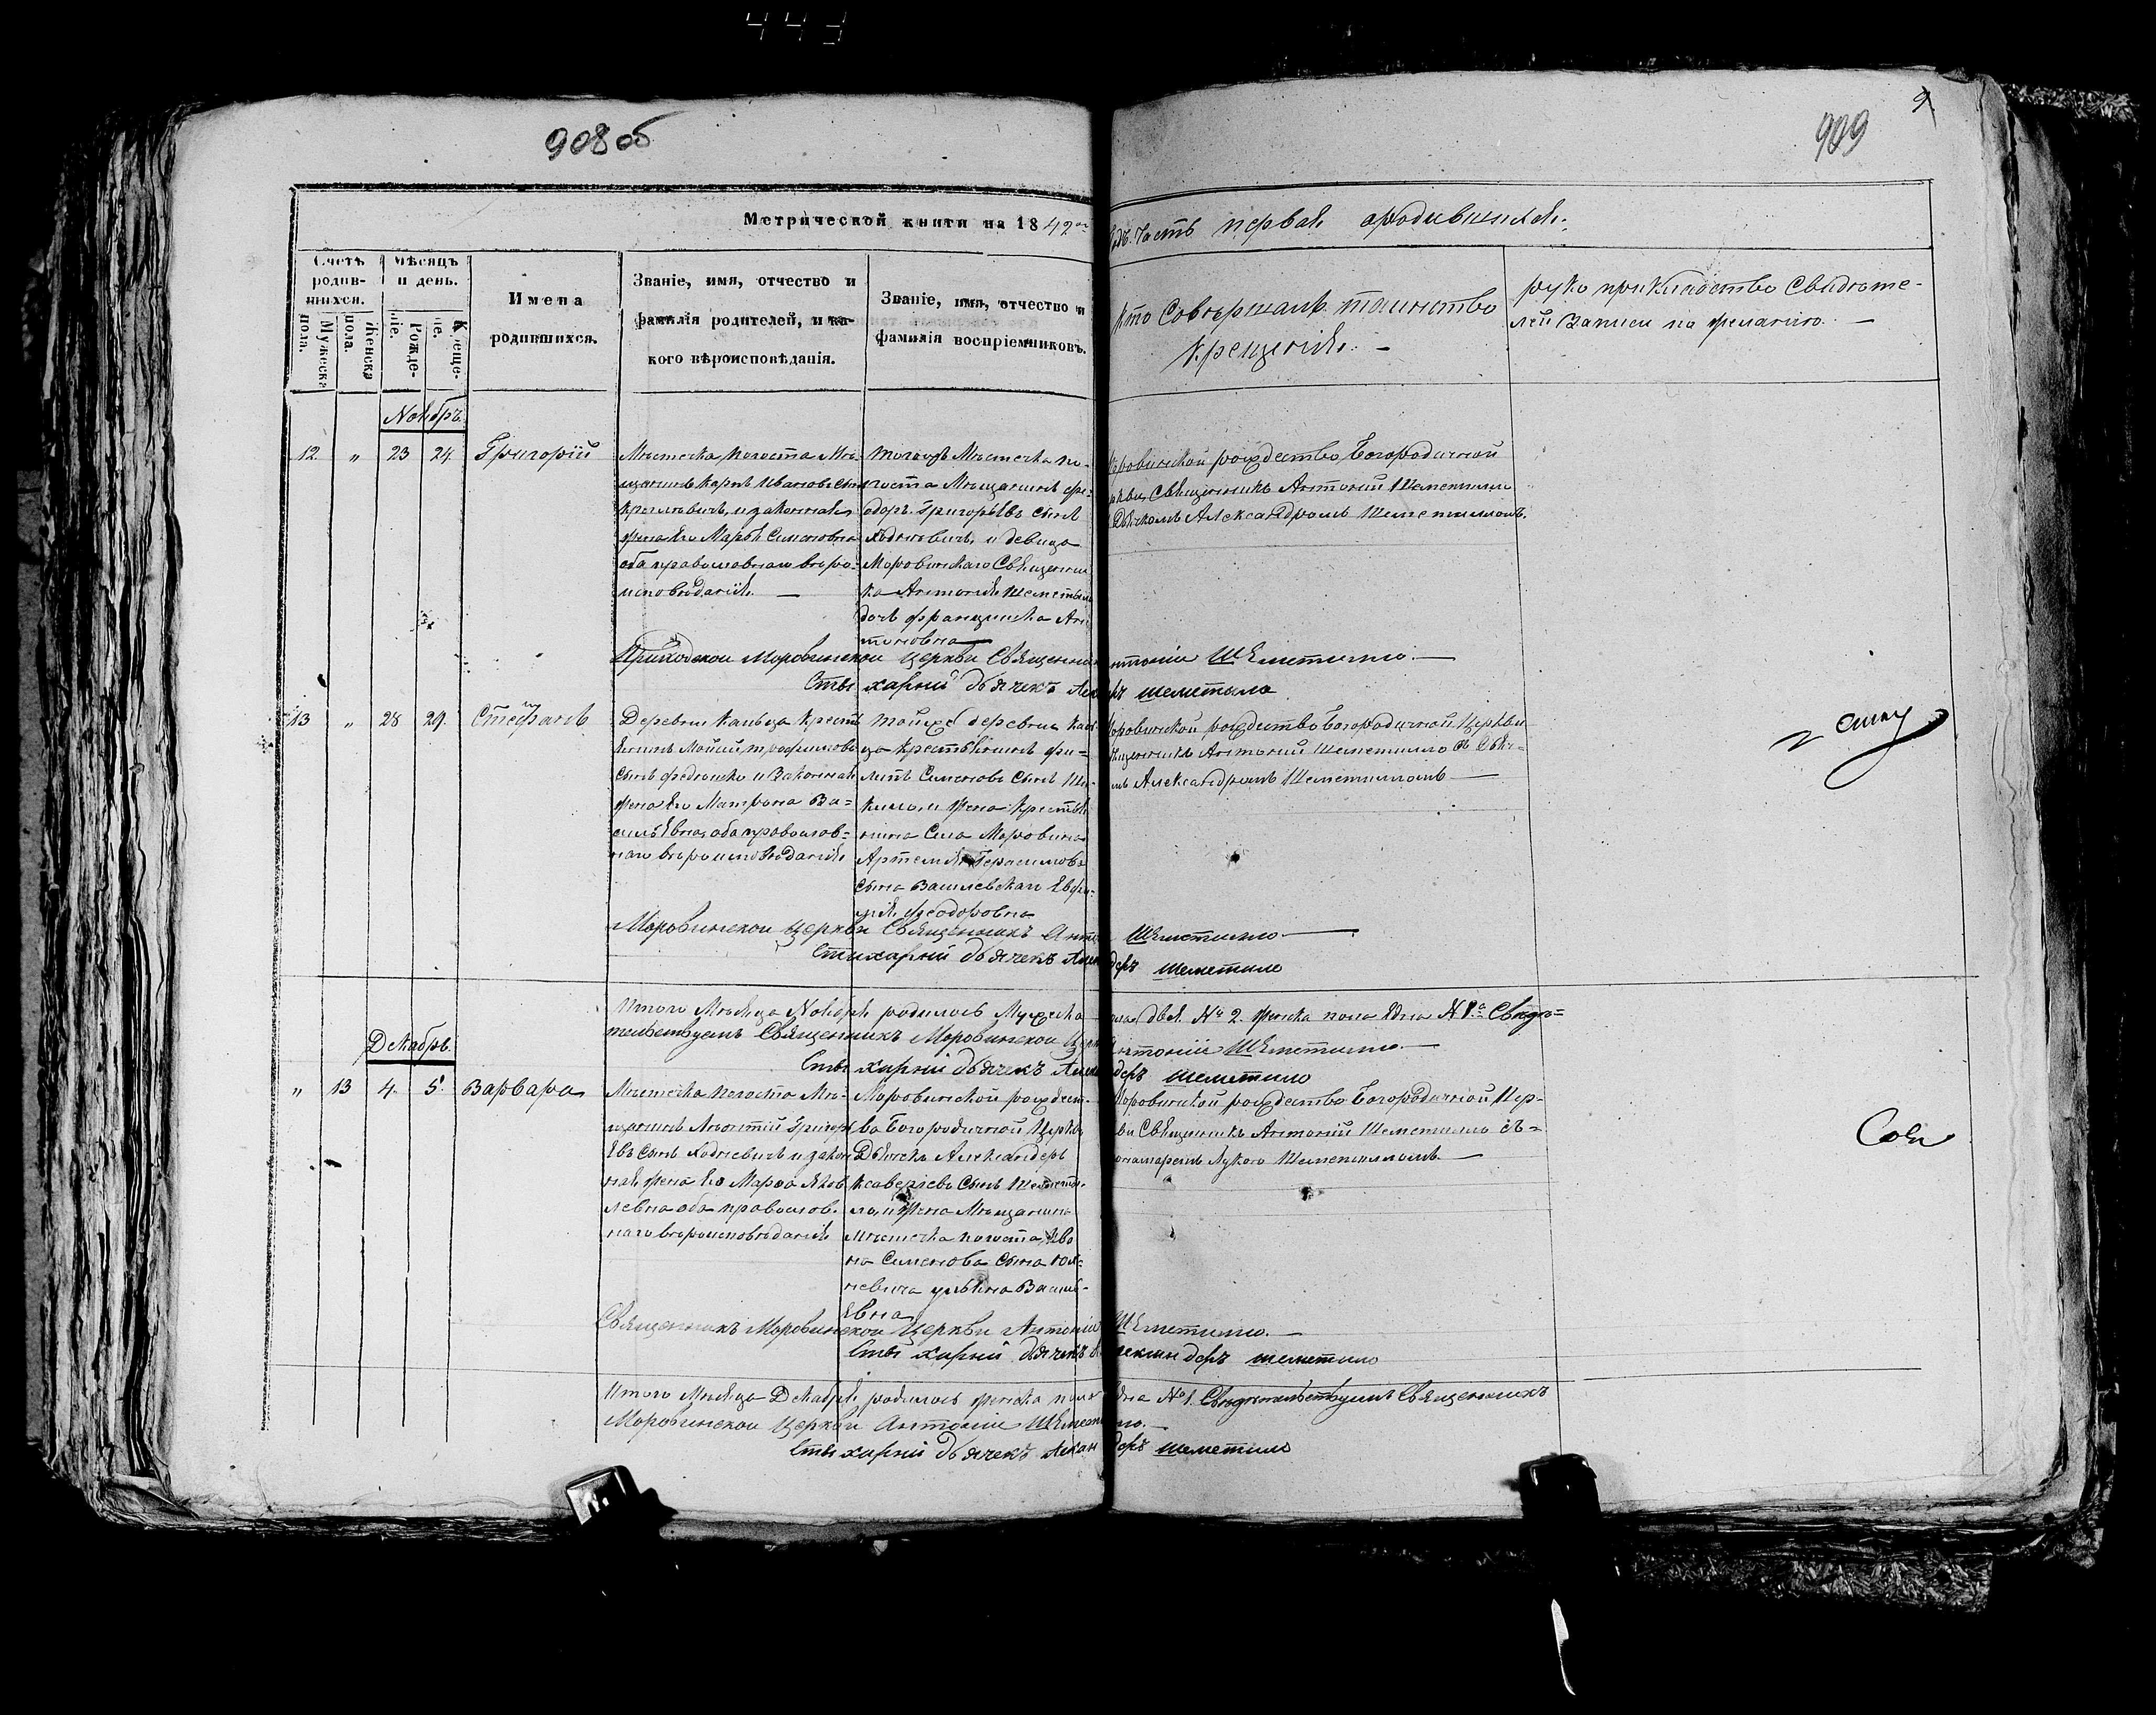 443
908 об
909
9
Метрической книги на 1842
Часть первая о родившихся.
Счетъ родив-шихся.
Мужеска пола.
Женска пола.
Мѣсяцъ и день.
Рожде-ніе.
Креще-
Имена
родившихся.
Званіе, имя, отчество и
фамилія родителей, и ка-
кого вѣроисповѣданія.
Званіе, имя, отчество и
фамилія воспріемниковъ.
Кто совершалъ таинство
Крещенія. —
руко прикладство свидѣте-
лей записи по желанію. —
Ноябрь
12. " 23 24. Григорій
Мѣстечка Погоста Мѣ-
щанинъ Карпъ Ивановъ сынъ
и законная
жена его Марья Семеновна
оба православнаго вѣро-
исповѣданія. —
тогожъ Мѣстечка По-
госта Мѣщанинъ Фе-
одоръ Григорьевъ сынъ
и девица
Моровинскаго Священни
ка Антонія Шеметыла
дочь Францишка Ан
тоновна
Моровинской рождество Богородичной
Священникъ Антоній Шеметилло
Дьячкомъ Александромъ Шеметилломъ.
Приходской Моровинской Церкви Священник Антоній Шеметилло. —
Стихарный дьячекъ шеметило
13 " 28 29. Стефанъ
Деревни крестя
янинъ трофимовъ
сынъ и Законная
жена Его Матрона Ва-
сильевна, оба православ-
наго вероисповѣданія
тойже деревни
ца крестьянинъ Фи-
липъ Семеновъ сынъ
и жена крестья
нина Села Моровина
Артемія Герасимова
сына Вашлевскаго Евфи-
мія Феодоровна
Моровинской рождество Богородичной Церкви
Священникъ Антоній Шеметилло съ Дьяч-
комъ Александромъ Шеметилломъ —
Моровинской Церкви Священникъ Антоній Шеметилло —
Стихарный дьячекъ шеметило
Итого Мѣсяца Ноября родилось Мужеска пола два № 2. женска пола една № 1. Свидѣ=
тельствуемъ Священникъ Моровинской Церкви Антоній Шеметилло. —
Стихарный дьячекъ шеметило
Декабрь.
" 13 4. 5. Варвара
Мѣстечка Погоста Мѣ-
щанинъ Леонтій Григорь
евъ сынъ Ходневичъ и закон
ная жена его Марѳа Яков
левна оба православ.
наго вѣроисповѣданія
Моровинской рождест-
ва Богородичной Церкви
Дьячекъ Александеръ
Ксаверіевъ сынъ Шемети-
ло, и жена Мѣщанина
Мѣстечка Погоста, Ива
на Семенова сына
невича Ульяна Василь-
Евна
Моровинской рождество Богородичной Цер-
кви Священникъ Антоній Шеметилло съ=
пономаремъ Лукою Шеметилломъ —
Священникъ Моровинской Церкви Антоній Шеметилло. —
Стихарный дьячекъ Александеръ шеметило
Итого Мѣсяца Декабря родилось женска пола една № 1. Свидѣтельствуемъ Священникъ
Моровинской Церкви Антоній Шеметилло. —
Стихарный дьячекъ шеметило